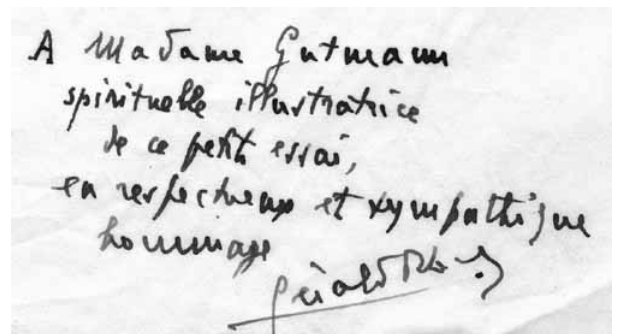 A Madame Gutmann
spirituelle illustratrice
de ce petit essai,
en respectueux et sympathique
hommage
Gérald